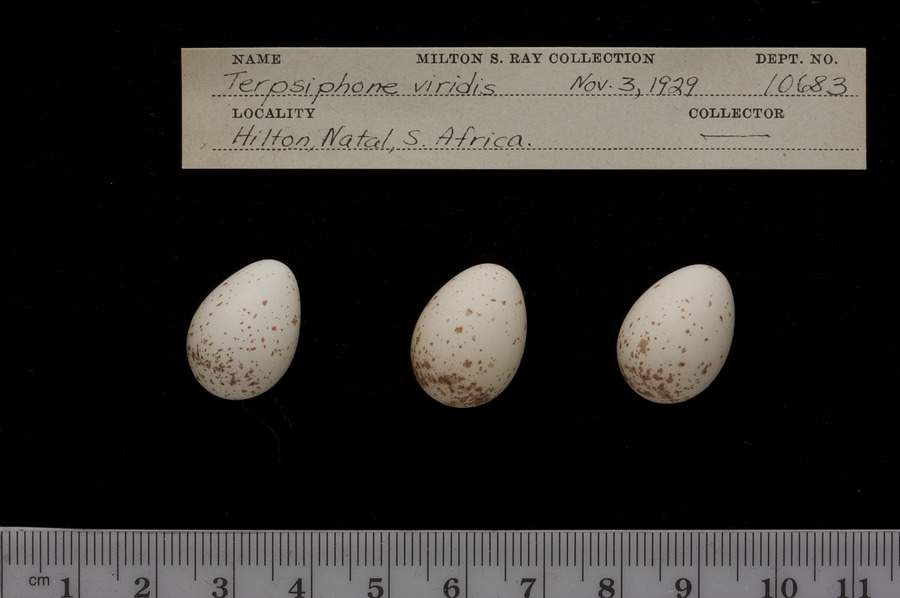 NAME MILTON S. RAY COLLECTION DEPT. NO.
Terpsiphone viridis Nov. 3, 1929 10683
LOCALITY COLLECTOR
Hilton, Natal, S. Africa.
cm 1 2 3 4 5 6 7 8 9 10 11